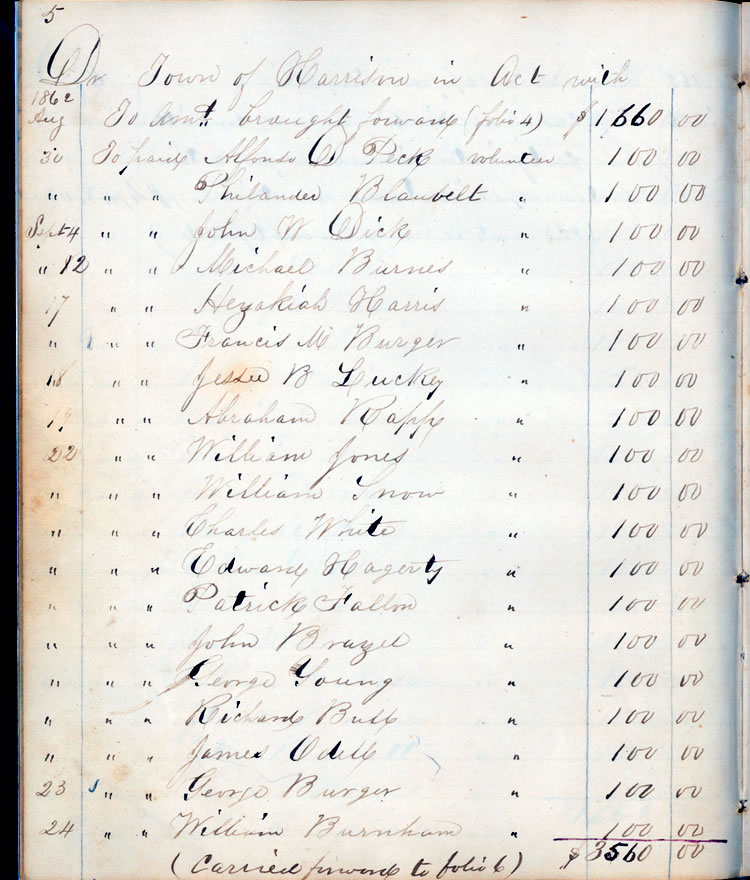 5
Dr Town of Harrison in Act with
1862
Aug To Amt brought forward (folio 4) $1660 00
30 To paid Alfonso C Peck volunteer 100 00
" " " Philander Blauvelt " 100 00
Sept 4 " " John W Dick " 100 00
" 12 " " Michael Burnes " 100 00
17 " " Hezakiah Harris " 100 00
" " " Francis M Burger " 100 00
18 " " Jessee B Luckey " 100 00
19 " " Abraham Rapp " 100 00
22 " " William Jones " 100 00
" " " William Snow " 100 00
" " " Charles White " 100 00
" " " Edward Hagerty " 100 00
" " " Patrick Fallon " 100 00
" " " John Brazel " 100 00
" " " George Young " 100 00
" " " Richard Bull " 100 00
" " " James Odell " 100 00
23 " " George Burger " 100 00
24 " " William Burnham " 100 00
(Carried forward to folio 6) $3560 00